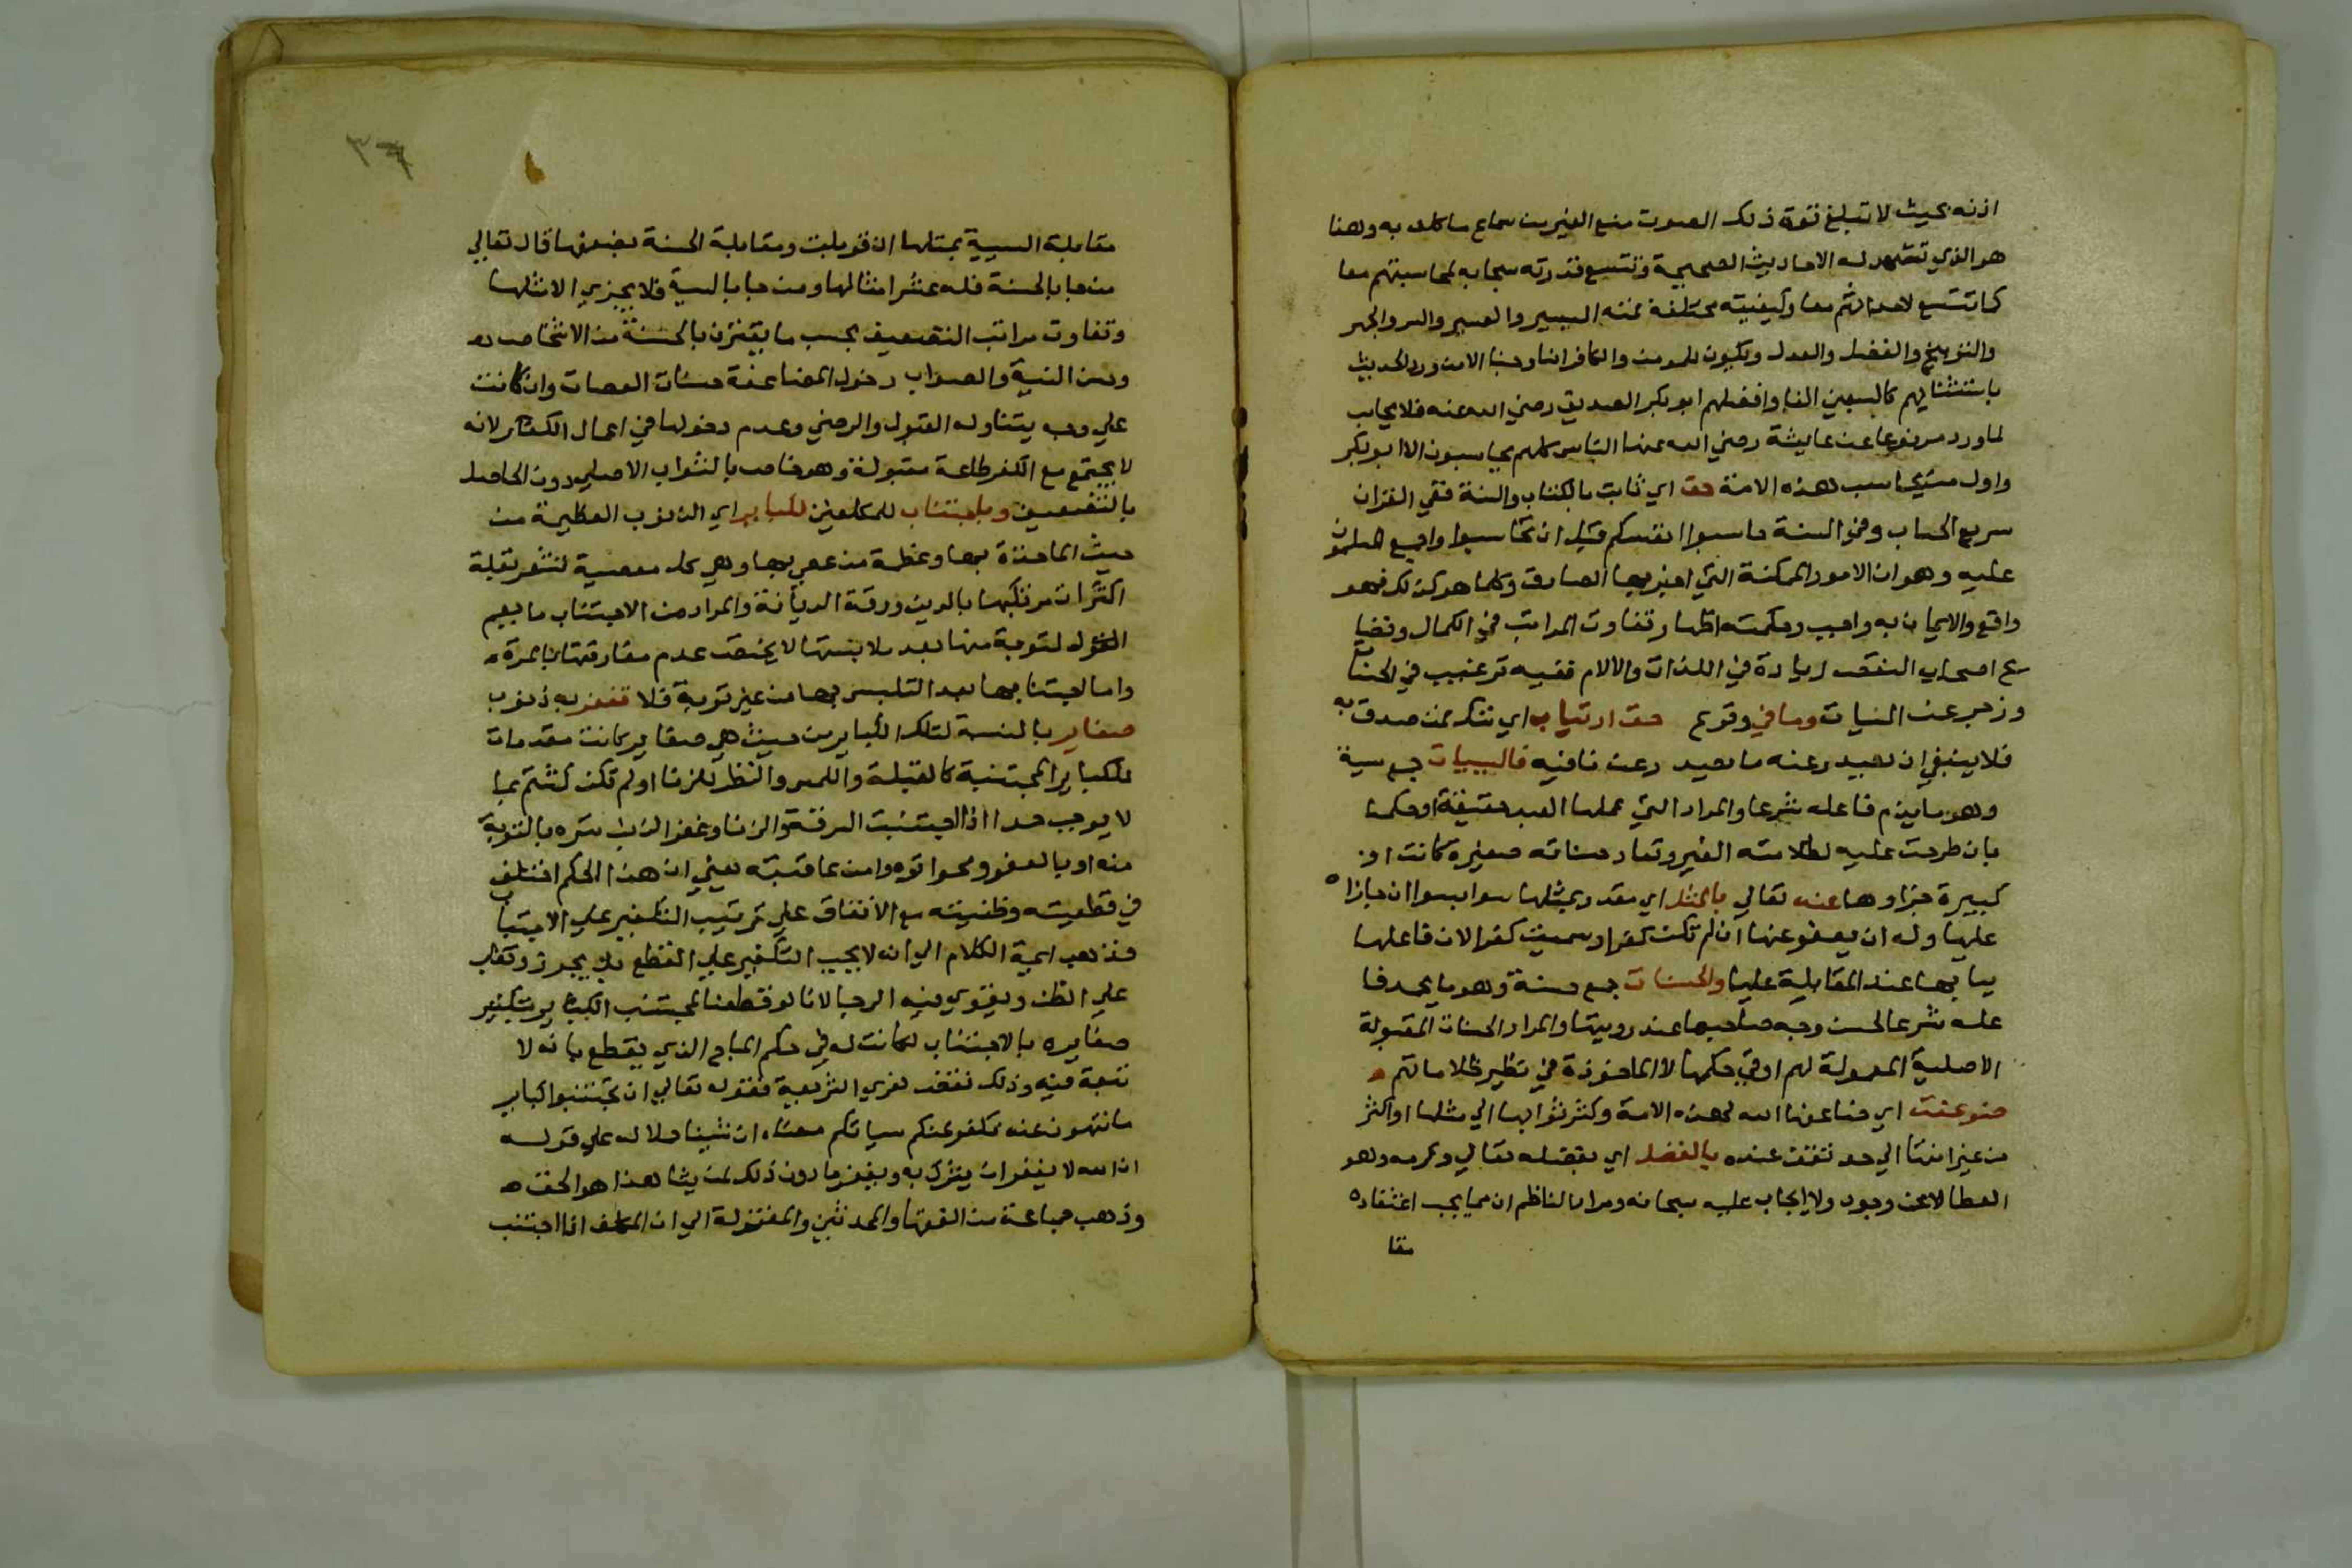 اذنه بحيث لا تبلغ قوة ذلك الصوت منع الغير من سماع ما كلف به وهذا
هو الذي تشهد له الاحاديث الصحيحة وتتسع قدرته سبحانه لمحاسبتهم معا
كما تتسع لاحداثهم معا وكيفيته مختلفة فمنه اليسير والعسير والسر والجهر
والتوبيخ والفضل والعدل ويكون للمومن والكافر انسا وجنا الا من ورد الحديث
باستثنائهم كالسبعين الفا وافضلهم ابو بكر الصديق رضي الله عنه فلا يحاسب
لما ورد مرفوعا عن عايشة رضي الله عنها الناس كلهم يحاسبون الا ابو بكر
واول من يحاسب هذه الامة حق اي ثابت بالكتاب والسنة ففي القران
سريع الحساب وفي السنة حاسبوا انفسكم قبل ان تحاسبوا واجمع المسلمون
عليه وهو من الامور الممكنة التي اخبر بها الصادق وكلما هو كذلك فهو
واقع والايمان به واجب وحكمته اظهار تفاوت المراتب في الكمال وفضايح
اصحاب النقص زيادة في اللذات والالام ففيه ترغيب في الحسنات
وزجر عن السيات وما في وقوع حق ارتياب اي شك لمن صدق به
فلا ينبغي ان يصدر عنه ما بعيد رعن منافيه فالسييات جمع سيية
وهو ما يذم فاعله شرعا والمراد التي عملها العبد حقيقة او حكما
بان طرحت عليه لظلامته الغير ونفاد حسناته صغيرة كانت او
كبيرة جزاوها عنده تعالى بالمثل اي مقدر بمثلها سوا بسوا ان جازا
عليها وله ان يعفو عنها ان لم تكن كفرا وسميت كفرا لان فاعلها
يسا بها عند المقابلة عليها والحسنات جمع حسنة وهو ما يحمد فا
عله شرعا لحسن وجه صاحبها عند رويتها والمراد الحسنات المقبولة
الاصلية المعمولة لهم او في حكمها لا الماخوذة في نظير ظلاماتهم
ضوعفت اي ضاعفها الله لهذه الامة وكثر ثوابها الي مثلها او اكثر
من غير انتها الي حد تقف عنده بالفضل اي بفضله تعالي وكرمه وهو
العطا لا عن وجوب ولا ايجاب عليه سبحانه ومراد الناظم ان مما يجب اعتقاده
مقا
٣٦
مقابلة السيية بمثلها ان قوبلت ومقابلة الحسنة بضعفها قال تعالي
من جا بالحسنة فله عشر امثالها ومن جا بالسيية فلا يجزي الا مثلها
وتفاوت مراتب التضعيف بحسب ما يقترن بالحسنة من الاخلاص
وحسن النية والصواب دخول المضاعفة حسنات العصات وان كانت
علي وجه يتناوله القبول والرضي وعدم دخولها في اعمال الكفار لانه
لا يجتمع مع الكفر طاعة مقبولة وهو خاص بالثواب الاصلي دون الحاصل
بالتضعيف وباجتناب للمكلفين للكباير اي الذنوب العظيمة من
حيث الماخذة بها وعظمة من عصي بها وهي كل معصية تشعر بقلة
اكتراث مرتكبها بالدين ورقة الديانة والمراد من الاجتناب ما يعم
التوبة منها بعد ملابستها لا يختص عدم مفارقتها بالمرة
واما اجتنابها بعد التلبس بها من غير توبة فلا تغفر به ذنوب
صغاير بالنسبة لتلك الكباير من حيث هي صغاير كانت مقدمات
للكباير المجتنبة كالقبلة واللمس والنظر للزنا او لم تكن كشتم بما
لا يوجب حدا اذا اجتنبت السرقة والزنا وغفر الذنب ستره بالتوبة
منه او بالعفو ومحو اثره وامن عاقبته يعني ان هذا الحكم اختلف
في قطعيته وظنيته مع الاتفاق علي ترتيب التكفير علي الاجتناب
فذهب ايمة الكلام الي انه لا يجب التكفير علي القطع بل يجوز ويغلب
علي الظن ويقوي فيه الرجا لانا لو قطعنا لمجتنب الكباير بتكفير
صغايره بالاجتناب لكانت له في حكم المباح الذي يقطع بانه لا
تبعة فيه وذلك نقض لعري الشريعة فقوله تعالي ان تجتنبوا كباير
ما تنهون عنه نكفر عنكم سياتكم معناه ان شينا حملا له علي قوله
ان الله لا يغفر ان يشرك به ويغفر ما دون ذلك لمن يشا هذا هو الحق
وذهب جماعة من الفقها والمحدثين والمعتزلة الي ان المكلف اذا اجتنب